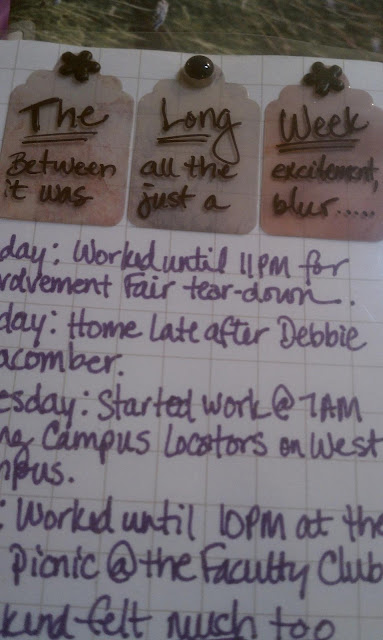 The Long Week
Between all the excitement,
it was just a blur.....
day: Worked until 11PM for
volvement Fair tear-down.
day: Home Late after Debbie
acomber.
esday: Started work @ 7AM
ng Campus Locators on West
mpus.
: Worked until 10PM at the
Picnic @ the Faculty Club
kend felt much too